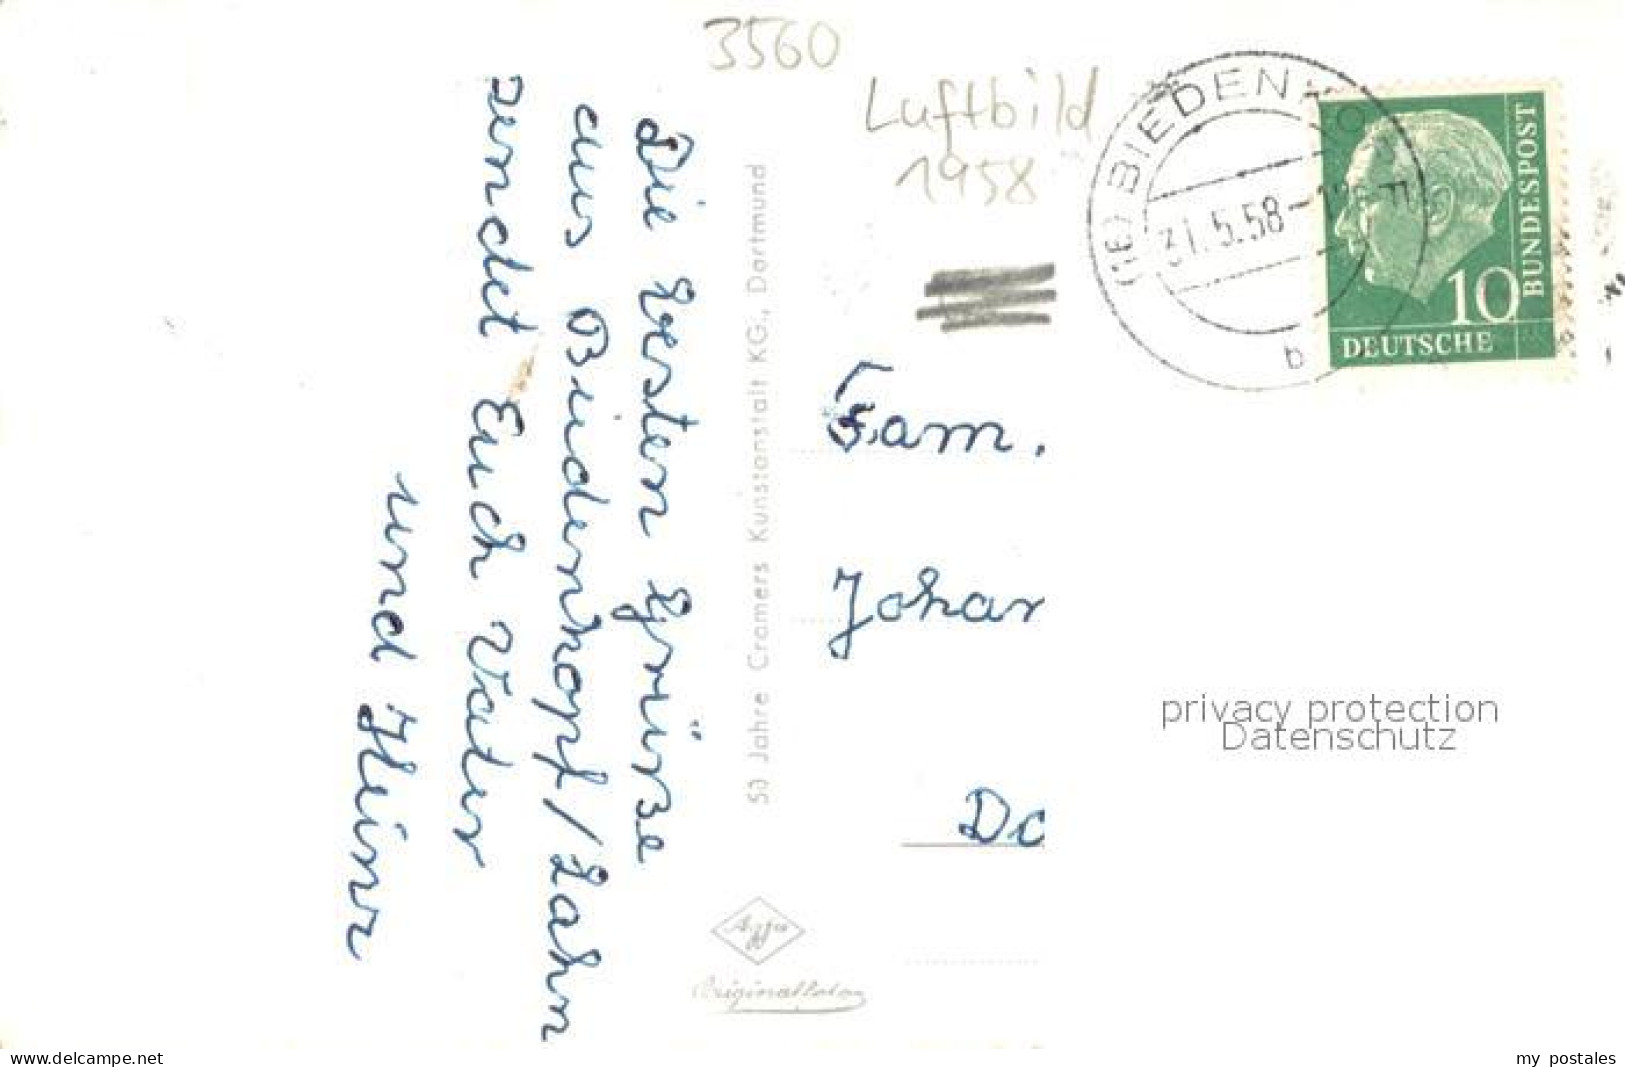 3560
Luftbild
1958
(16) BIEDENKOPF
31.5.58
b
BUNDESPOST
10
DEUTSCHE
Die besten Grüße
aus Biedenkopf/Lahn
sendet Euch Vater
und Heinz
50 Jahre Cramers Kunstanstalt KG., Dortmund
Fam.
Johan
Do
Agfa
Originalfoto
privacy protection
Datenschutz
www.delcampe.net
my postales